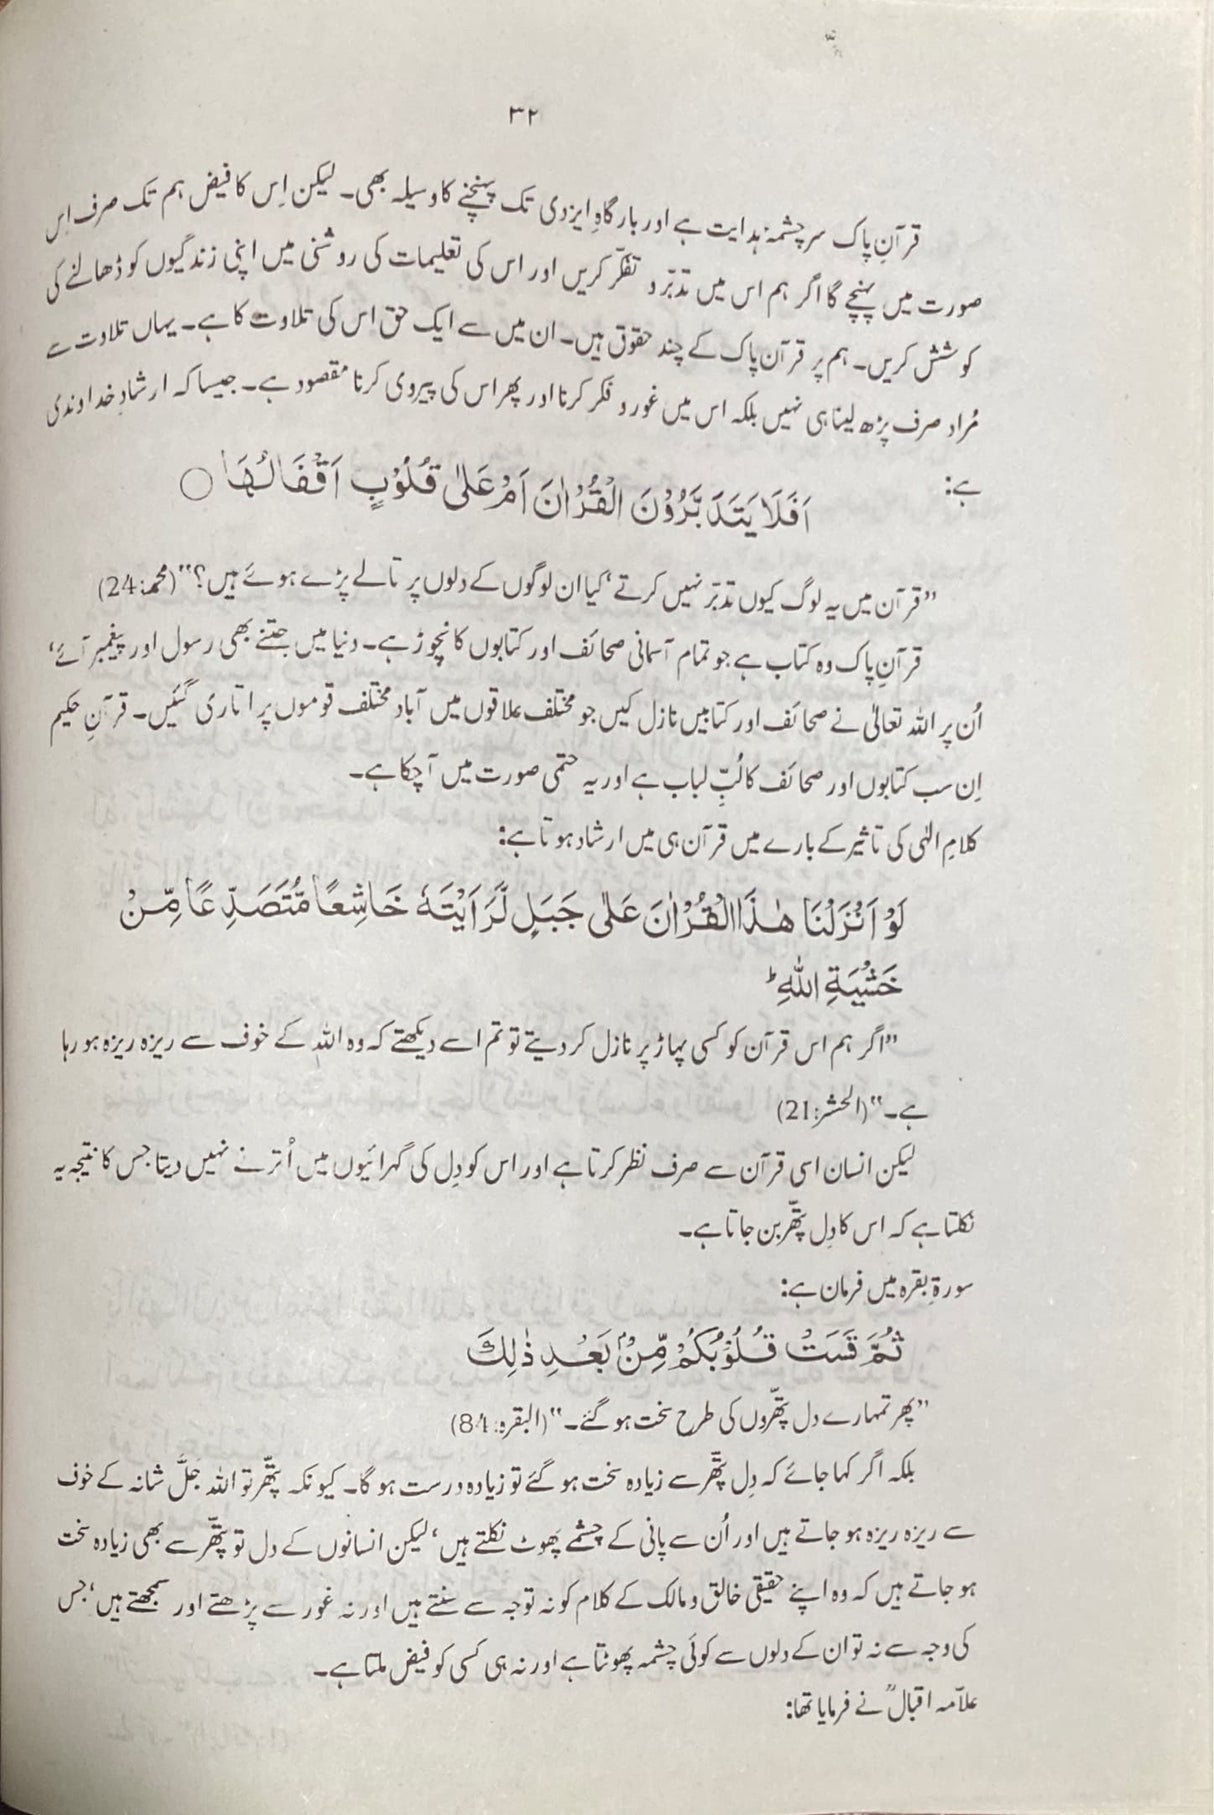 ۳۲
قرآنِ پاک سرچشمۂ ہدایت ہے اور بارگاہِ ایزدی تک پہنچنے کا وسیلہ بھی۔ لیکن اِس کا فیض ہم تک صرف اِس
صورت میں پہنچے گا اگر ہم اس میں تدبّر و تفکّر کریں اور اس کی تعلیمات کی روشنی میں اپنی زندگیوں کو ڈھالنے کی
کوشش کریں۔ ہم پر قرآن پاک کے چند حقوق ہیں۔ ان میں سے ایک حق اس کی تلاوت کا ہے۔ یہاں تلاوت سے
مُراد صرف پڑھ لینا ہی نہیں بلکہ اس میں غور و فکر کرنا اور پھر اس کی پیروی کرنا مقصود ہے۔ جیسا کہ ارشادِ خداوندی
ہے:
اَفَلَا يَتَدَبَّرُوْنَ الْقُرْاٰنَ اَمْ عَلٰى قُلُوْبٍ اَقْفَالُهَا ○
”قرآن میں یہ لوگ کیوں تدبّر نہیں کرتے‘ کیا ان لوگوں کے دلوں پر تالے پڑے ہوئے ہیں؟“ (محمد:24)
قرآنِ پاک وہ کتاب ہے جو تمام آسمانی صحائف اور کتابوں کا نچوڑ ہے۔ دنیا میں جتنے بھی رسول اور پیغمبر آئے‘
اُن پر اللہ تعالیٰ نے صحائف اور کتابیں نازل کیں جو مختلف علاقوں میں آباد مختلف قوموں پر اتاری گئیں۔ قرآنِ حکیم
اِن سب کتابوں اور صحائف کا لُبِّ لباب ہے اور یہ حتمی صورت میں آ چکا ہے۔
کلامِ الٰہی کی تاثیر کے بارے میں قرآن ہی میں ارشاد ہوتا ہے:
لَوْ اَنْزَلْنَا هٰذَا الْقُرْاٰنَ عَلٰى جَبَلٍ لَّرَاَيْتَهٗ خَاشِعًا مُّتَصَدِّعًا مِّنْ
خَشْيَةِ اللّٰهِ ؕ
”اگر ہم اس قرآن کو کسی پہاڑ پر نازل کر دیتے تو تم اسے دیکھتے کہ وہ اللہ کے خوف سے ریزہ ریزہ ہو رہا
ہے۔“ (الحشر:21)
لیکن انسان اسی قرآن سے صرف نظر کرتا ہے اور اس کو دِل کی گہرائیوں میں اُترنے نہیں دیتا جس کا نتیجہ یہ
نکلتا ہے کہ اس کا دِل پتھّر بن جاتا ہے۔
سورۃِ بقرہ میں فرمان ہے:
ثُمَّ قَسَتْ قُلُوْبُكُمْ مِّنْۢ بَعْدِ ذٰلِكَ
”پھر تمہارے دل پتھّروں کی طرح سخت ہو گئے۔“ (البقرہ:84)
بلکہ اگر کہا جائے کہ دِل پتھّر سے زیادہ سخت ہو گئے تو زیادہ درست ہو گا۔ کیونکہ پتھّر تو اللہ جَلَّ شانہ کے خوف
سے ریزہ ریزہ ہو جاتے ہیں اور اُن سے پانی کے چشمے پھوٹ نکلتے ہیں‘ لیکن انسانوں کے دل تو پتھّر سے بھی زیادہ سخت
ہو جاتے ہیں کہ وہ اپنے حقیقی خالق و مالک کے کلام کو نہ توجہ سے سنتے ہیں اور نہ غور سے پڑھتے اور سمجھتے ہیں‘ جس
کی وجہ سے نہ تو ان کے دلوں سے کوئی چشمہ پھوٹتا ہے اور نہ ہی کسی کو فیض ملتا ہے۔
علاّمہ اقبالؒ نے فرمایا تھا: